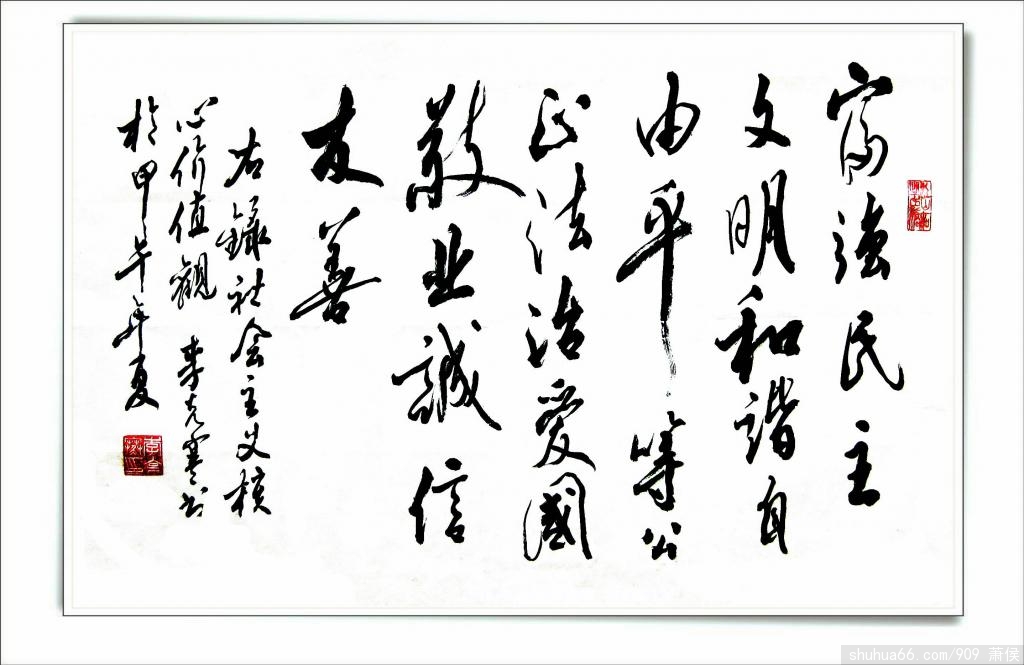 富強民主
文明和諧自
由平等公
正法治愛國
敬业誠信
友善
右錄社会主义核
心价值觀 李克寒书
於甲午年夏
shuhua66.com/909 萧侯